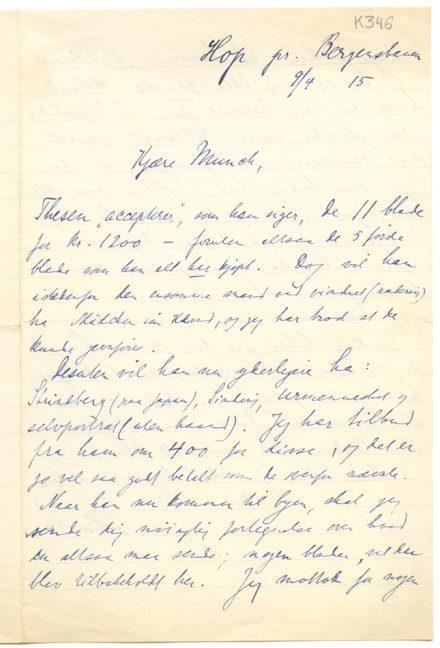 K346
Hop pr. Bergensbanen
9/4 15
Kjære Munch,
Thesen "accepterer", som han siger, de 11 blade
for kr. 1200 — foruden altsaa de 5 første
blade som han alt har kjøpt. Dog vil han
istedenfor den ensomme mand ved vinduet (radering)
ha Madden im Hemd, og jeg har trod at de
kunde
Desuten vil han nu yderligere ha:
Strindberg (paa japan), Sinding, Urmennesket og
selvportræt (uten haand). Jeg har tilbud
fra ham om 400 for disse, og det er
jo vel saa godt betalt som de ovenfor nævnte.
Naar han nu kommer til byen, skal jeg
sende dig nøiagtig fortegnelse over hvad
du altsaa maa sende; nogen blade
blev tilbakeholdt her. Jeg mottok for nogen